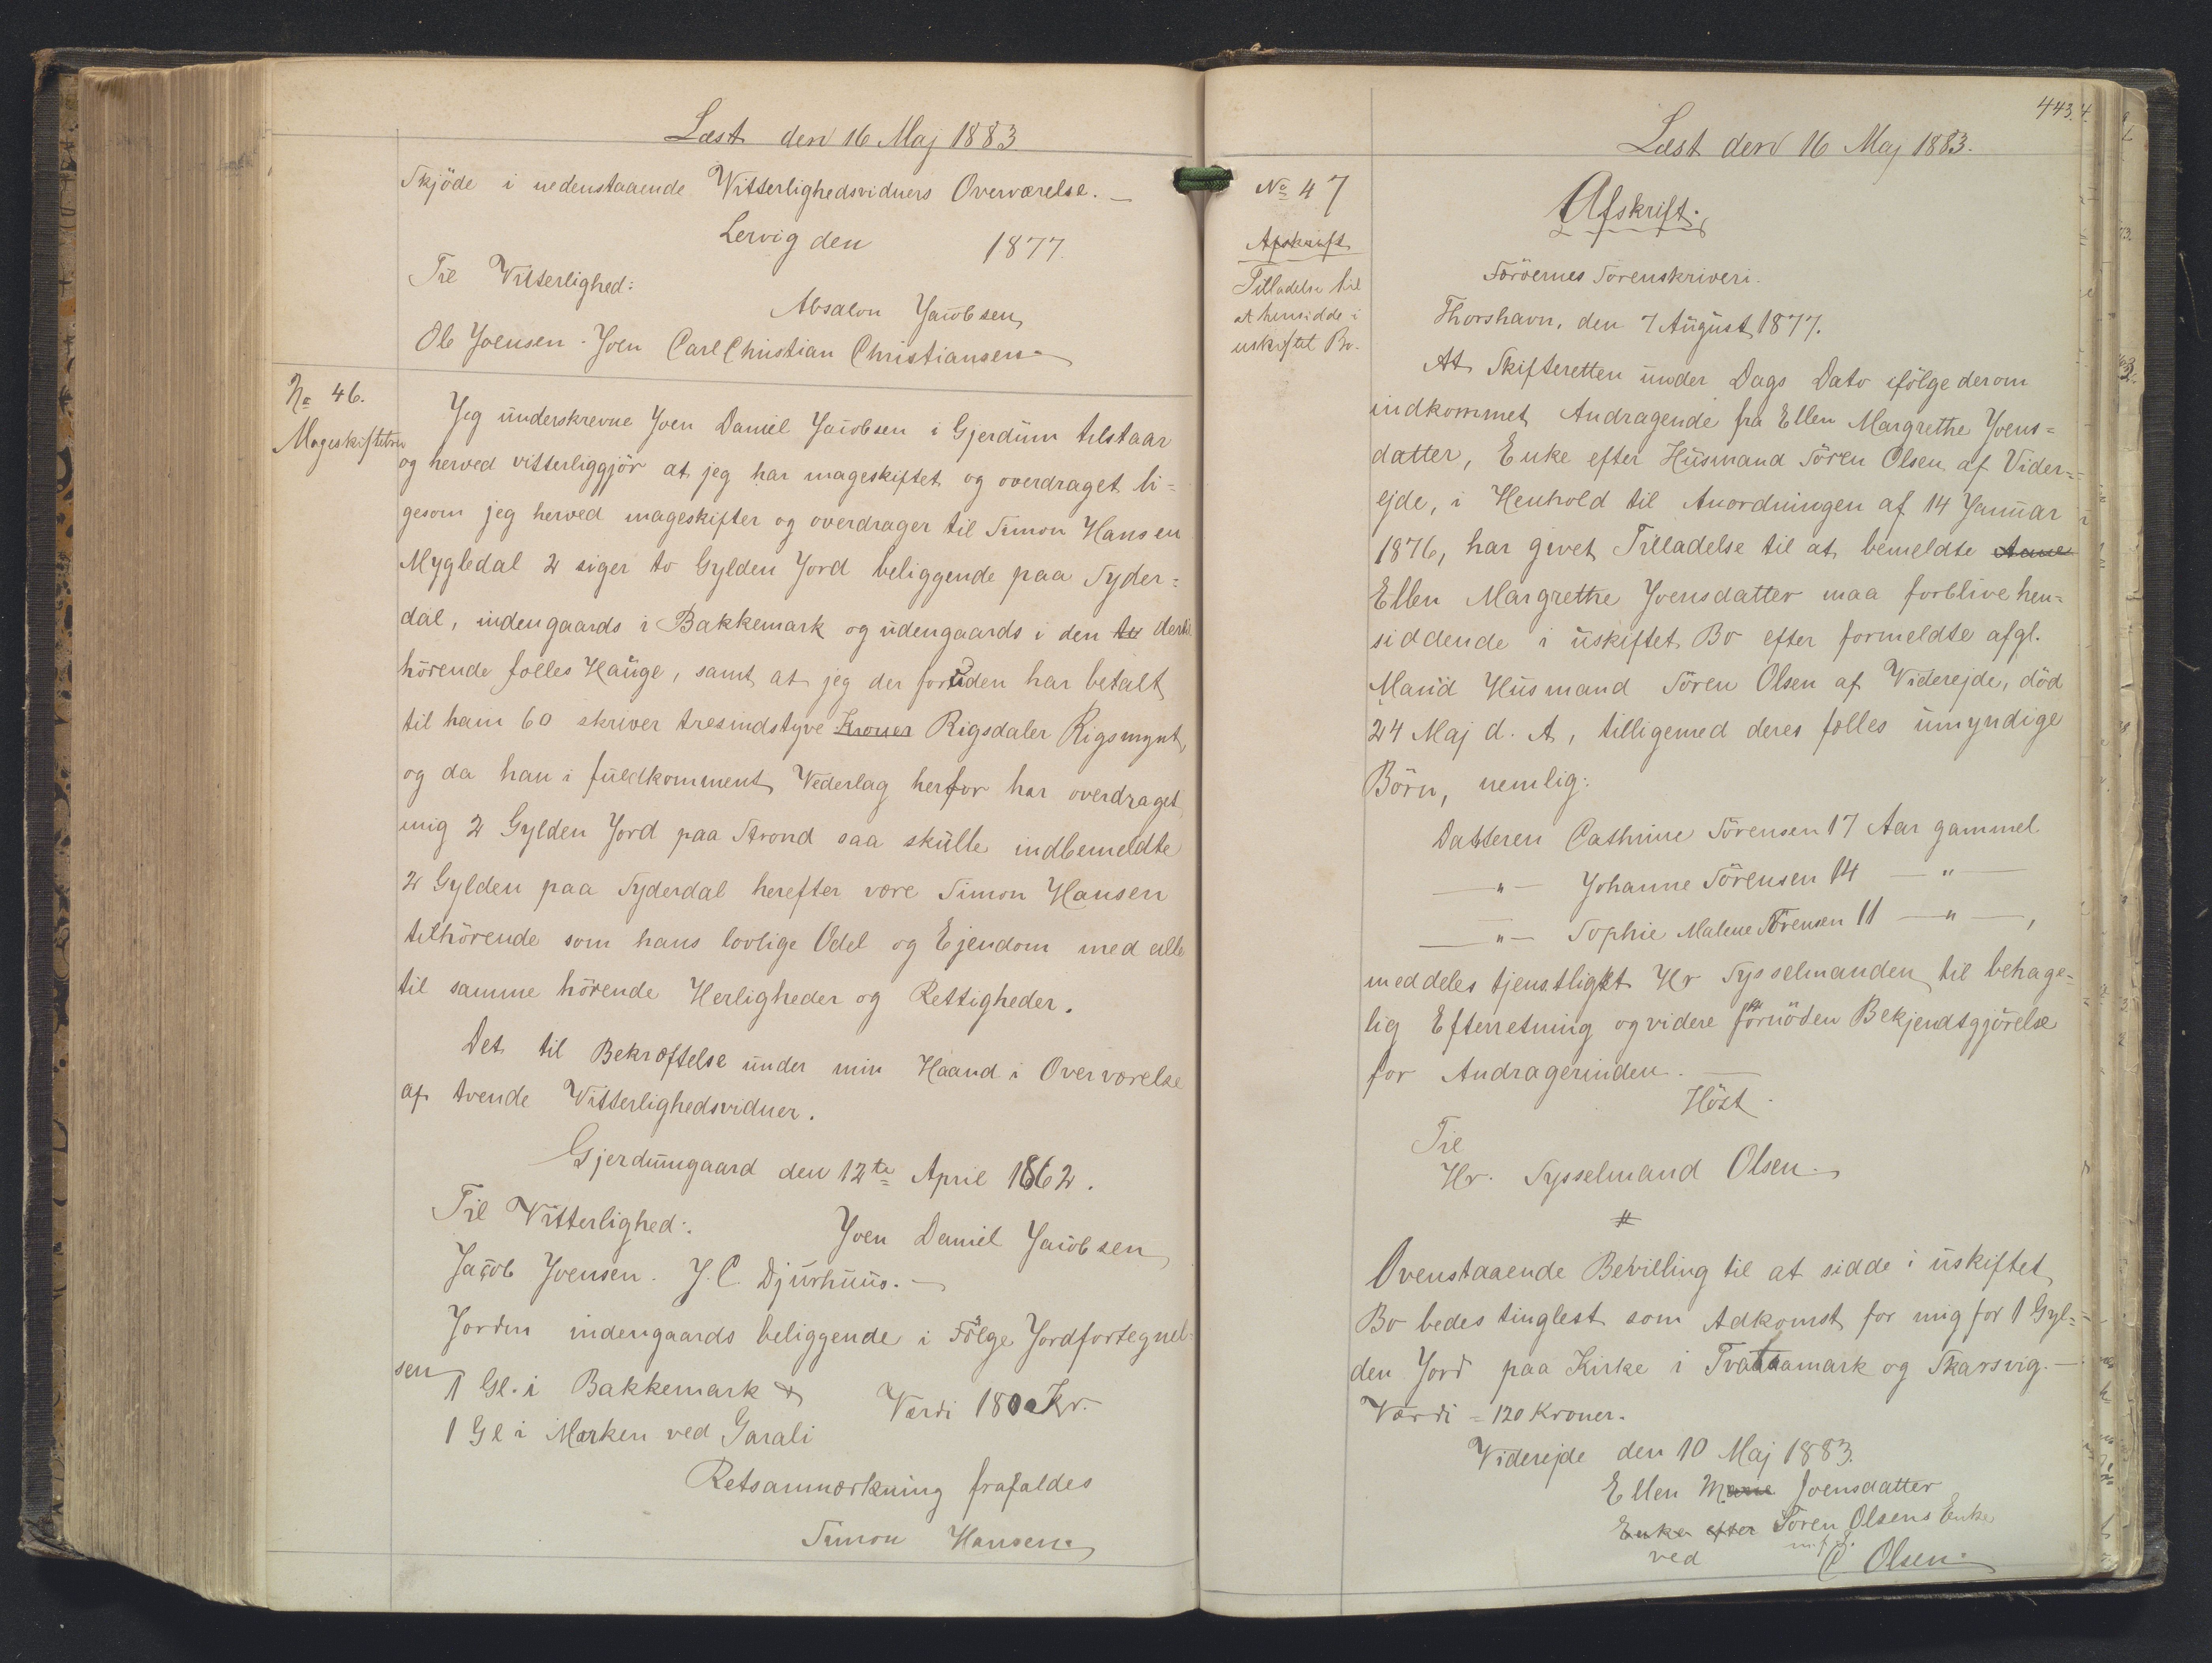 Læst den 16 Maj 1883
Skjöde i nedenstaaende Vitterlighedsvidners Overværelse. —
Lervig den 1877.
Til Vitterlighed:
Absalon Jacobsen
Ole Joensen. Joen Carl Christian Christiansen
No 46.
Mageskiftebrev
Jeg underskrevne Joen Daniel Jacobsen i Gjerdum tilstaar
og herved vitterliggjör at jeg har mageskiftet og overdraget li=
gesom jeg herved mageskifter og overdrager til Simon Hansen
Mygledal 2 siger to Gylden Jord beliggende paa Syder=
dal, indengaards i Bakkemark og udengaards i den dertil
hörende fælles Hauge, samt at jeg der foruden har betalt
til ham 60 skriver tresindstyve Kroner Rigsdaler Rigsmynt,
og da han i fuldkomment Vederlag herfor har overdraget
mig 2 Gylden Jord paa Strond saa skulle indbemeldte
2 Gylden paa Syderdal herefter være Simon Hansen
tilhörende som hans lovlige Odel og Ejendom med alle
til samme hörende Herligheder og Rettigheder.
Det til Bekræftelse under min Haand i Overværelse
af tvende Vitterlighedsvidner.
Gjerdumgaard den 12te April 1862.
Til Vitterlighed:
Joen Daniel Jacobsen
Jacob Joensen. J. C. Djurhuus. —
Jorden indengaards beliggende i Fölge Jordfortegnel-
sen
1 Gl. i Bakkemark &
Værdi 1800 Kr.
1 Gl i Marken ved Garali
Retsanmærkning frafaldes
Simon Hansen
443.
Læst den 16 Maj 1883.
No 47
Afskrift
Tilladelse til
at hensidde i
uskiftet Bo.
Afskrift.
Færöernes Sorenskriveri.
Thorshavn, den 7 August 1877.
At Skifteretten under Dags Dato ifölge derom
indkommet Andragende fra Ellen Margrethe Joens=
datter, Enke efter Husmand Sören Olsen af Vider=
ejde, i Henhold til Anordningen af 14 Januar
1876, har givet Tilladelse til at bemeldte Anne
Ellen Margrethe Joensdatter maa forblive hen=
siddende i uskiftet Bo efter formeldte afgl.
Mand Husmand Sören Olsen af Viderejde, död
24 Maj d. A, tilligemed deres fælles umyndige
Börn, nemlig:
Datteren Cathrine Sörensen 17 Aar gammel.
—"— Johanne Sörensen 14 —"—
—"— Sophie Malene Sörensen 11 —"—,
meddeles tjenstligst Hr Sysselmanden til behage=
lig Efterretning og videre fornöden Bekjendtgjörelse
for Andragerinden. —
Höst.
Til
Hr. Sysselmand Olsen
#
Ovenstaaende Bevilling til at sidde i uskiftet
Bo bedes tinglest som Adkomst for mig for 1 Gyl=
den Jord paa Kirke i Tvattamark og Skarsvig. —
Værdi = 120 Kroner.
Viderejde den 10 Maj 1883.
Ellen Joensdatter
Enke efter Sören Olsens Enke
ved m. f. P.
C Olsen